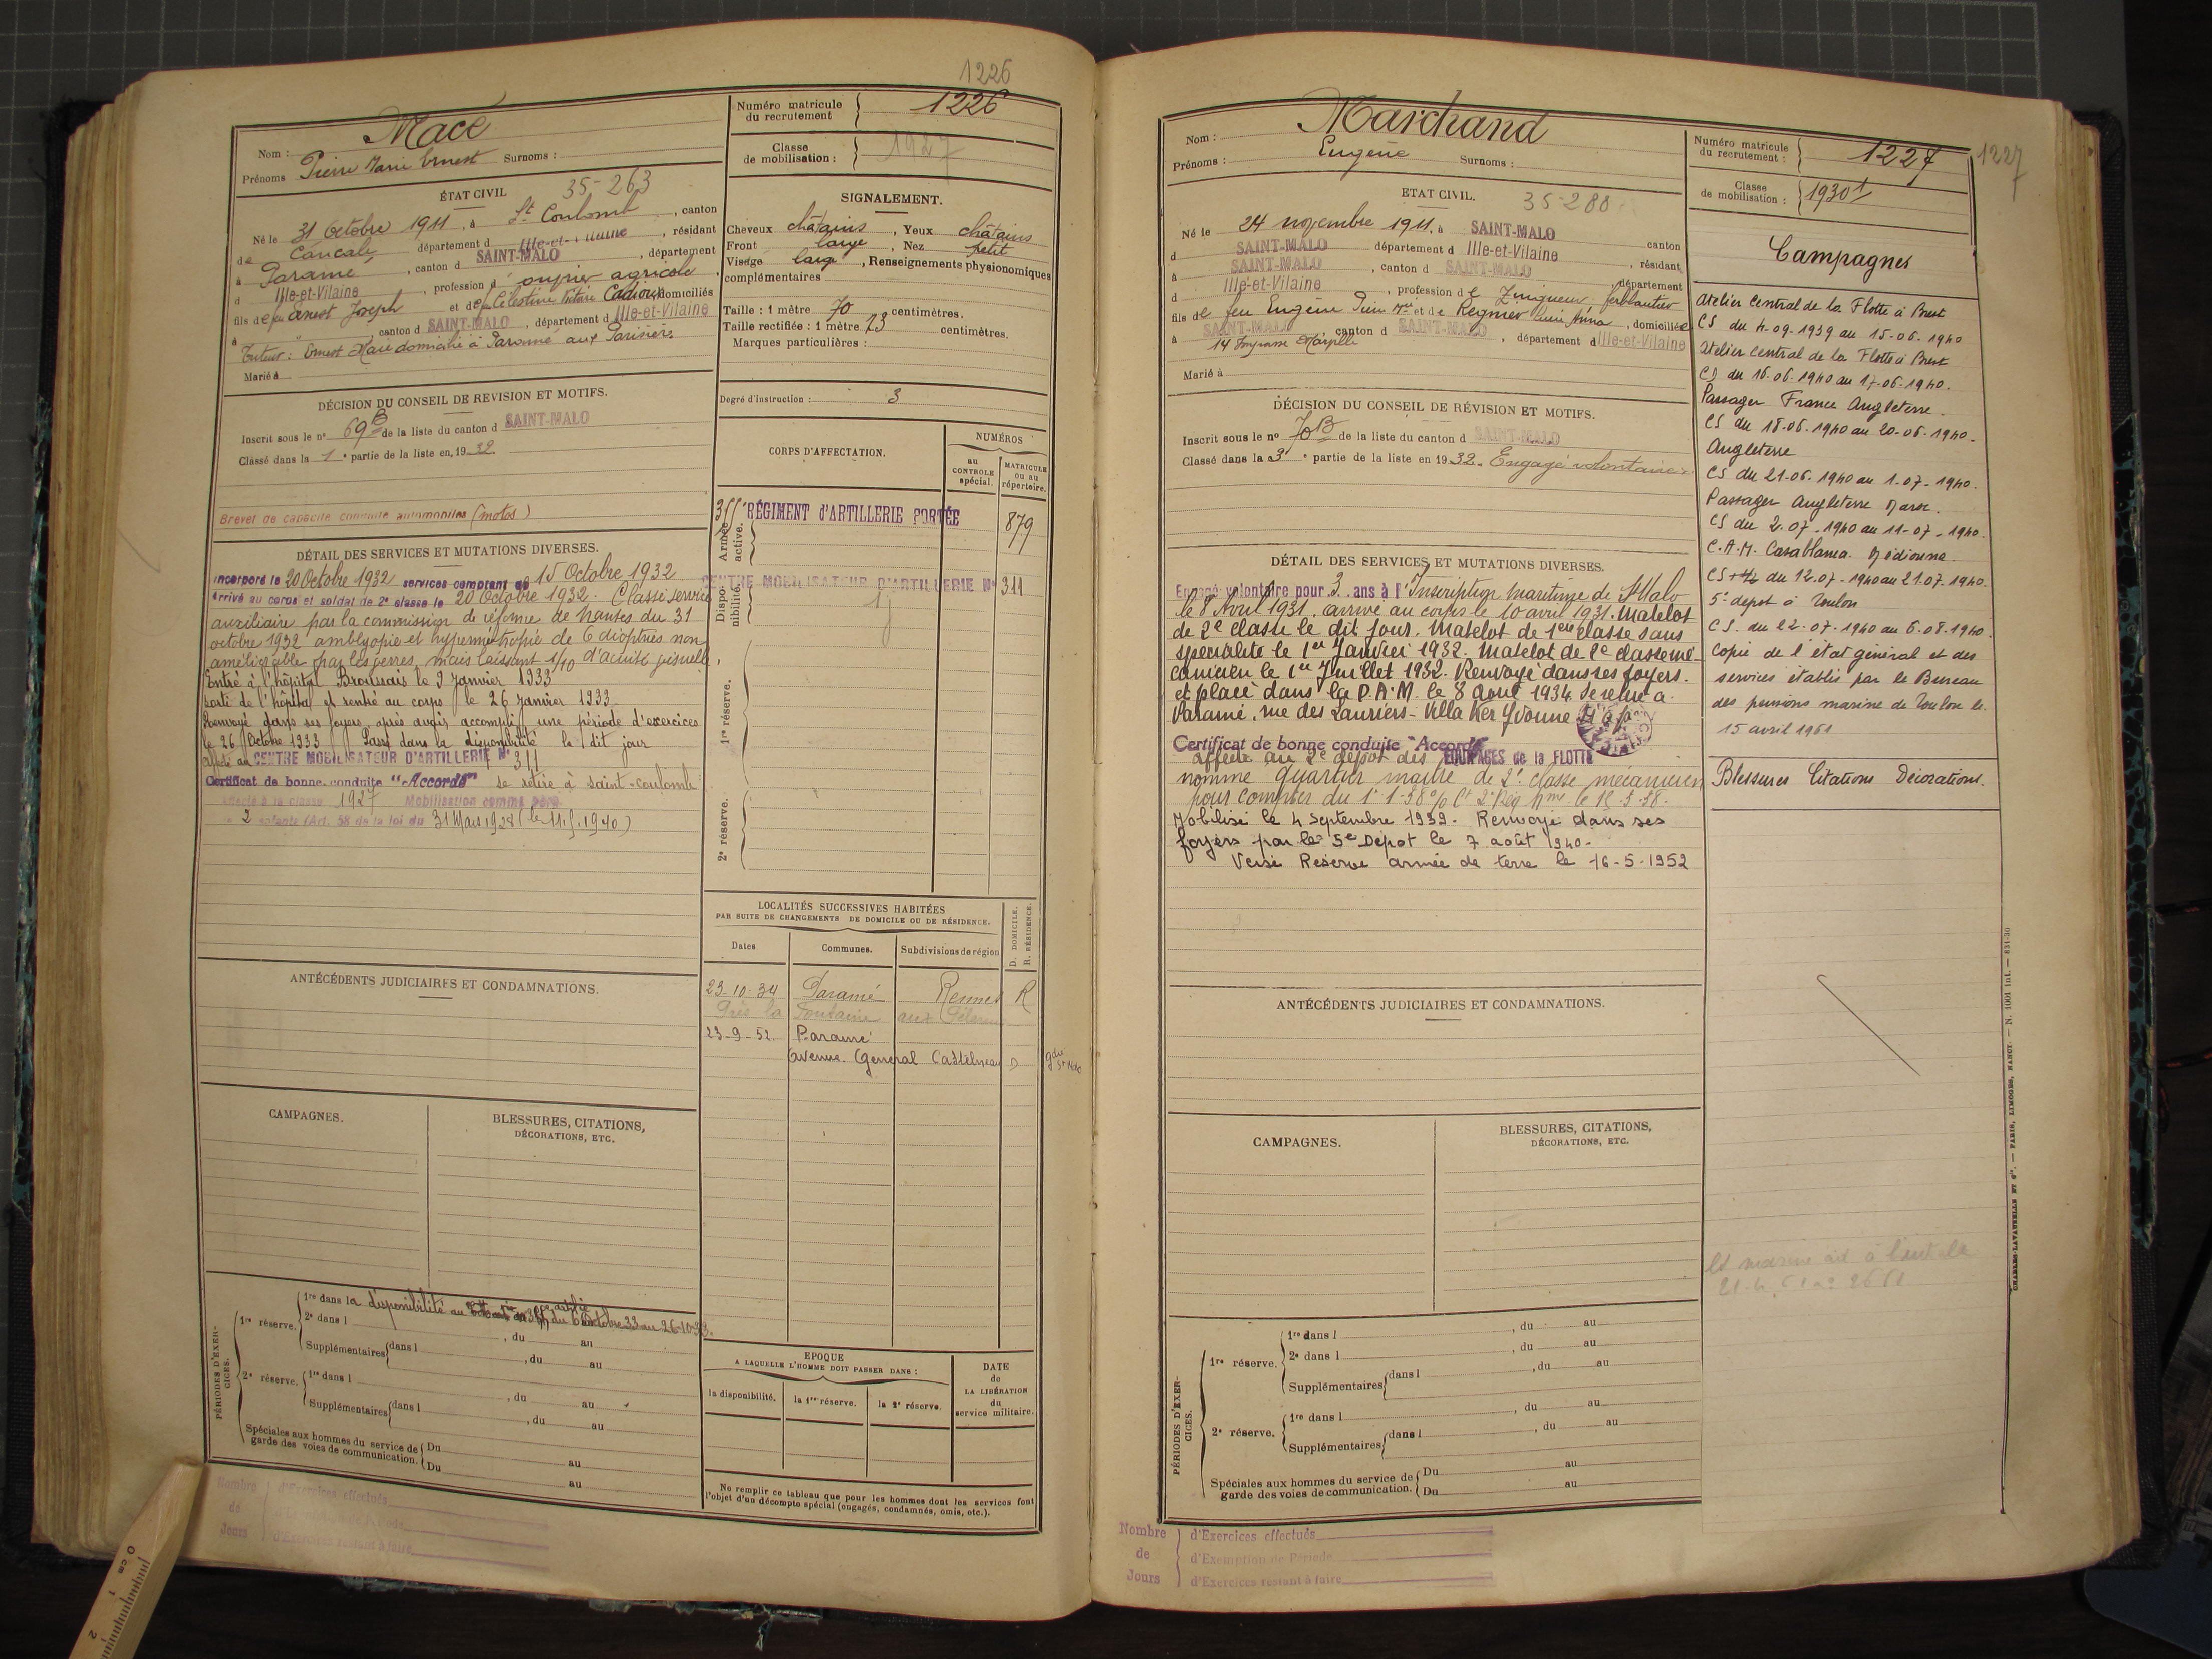 1226
Nom : Macé
Prénoms Pierre Marie Ernest Surnoms :
Numéro matricule du recrutement 1226
Classe de mobilisation : 1927
ÉTAT CIVIL 35-263
Né le 31 Octobre 1911, à St Coulomb, canton
de Cancale, département d Ille-et-Vilaine, résidant
à Paramé, canton d SAINT-MALO, département
d Ille-et-Vilaine, profession d'ouvrier agricole
fils de feu Ernest Joseph et de feu Célestine Victoire Cadiou, domiciliés
à canton d SAINT-MALO, département d Ille-et-Vilaine
Tuteur : Ernest Macé domicilié à Paramé aux
Marié à
SIGNALEMENT.
Cheveux châtains, Yeux châtains
Front large, Nez petit
Visage large, Renseignements physionomiques
complémentaires
Taille : 1 mètre 70 centimètres.
Taille rectifiée : 1 mètre 73 centimètres.
Marques particulières :
Degré d'instruction : 3
DÉCISION DU CONSEIL DE REVISION ET MOTIFS.
Inscrit sous le n° 69 B de la liste du canton d SAINT-MALO
Classé dans la 1e partie de la liste en 1932.
Brevet de capacité conduite automobiles (motos)
CORPS D'AFFECTATION.
NUMÉROS
au CONTROLE spécial.
MATRICULE ou au répertoire.
Armée active.
RÉGIMENT d'ARTILLERIE PORTÉE 879
Disponibilité.
CENTRE MOBILISATEUR D'ARTILLERIE N° 311
1re réserve.
2e réserve.
DÉTAIL DES SERVICES ET MUTATIONS DIVERSES.
Incorporé le 20 Octobre 1932 services comptant du 15 Octobre 1932
Arrivé au corps et soldat de 2e classe le 20 Octobre 1932. Classé service
auxiliaire par la commission de réforme de Nantes du 31
octobre 1932 amblyopie et hypermétropie de 6 dioptries non
améliorable par les verres, mais laissent 1/10 d'acuité visuelle.
Entré à l'hôpital Broussais le 9 Janvier 1933
sorti de l'hôpital et rentré au corps le 26 Janvier 1933
Renvoyé dans ses foyers après avoir accompli une période d'exercices
le 26 Octobre 1933 Passé dans la disponibilité le dit jour
affecté au CENTRE MOBILISATEUR D'ARTILLERIE N° 311
Certificat de bonne conduite "Accordé" se retire à saint-coulomb
Affecté à la classe 1927 Mobilisation comme père
2 enfants (Art. 58 de la loi du 31 Mars 1928 (le 11.5.1940)
LOCALITÉS SUCCESSIVES HABITÉES
PAR SUITE DE CHANGEMENTS DE DOMICILE OU DE RÉSIDENCE.
Dates Communes. Subdivisions de région D. DOMICILE. R. RÉSIDENCE.
23-10-34 Paramé Rennes R
Près la Fontaine aux
23-9-52. Paramé
avenue Général Castelnau D
ANTÉCÉDENTS JUDICIAIRES ET CONDAMNATIONS.
CAMPAGNES.
BLESSURES, CITATIONS, DÉCORATIONS, ETC.
PÉRIODES D'EXERCICES.
1re réserve.
1re dans la disponibilité au du 6 Octobre 33 au 26-10-33.
2e dans l , du au
Supplémentaires dans l , du au
2e réserve.
1re dans l , du au
Supplémentaires dans l , du au
Spéciales aux hommes du service de garde des voies de communication. Du au
Du au
EPOQUE
A LAQUELLE L'HOMME DOIT PASSER DANS :
la disponibilité. la 1re réserve. la 2e réserve.
DATE de LA LIBÉRATION du service militaire.
Ne remplir ce tableau que pour les hommes dont les services font
l'objet d'un décompte spécial (engagés, condamnés, omis, etc.).
Nombre de Jours
d'Exercices effectués
d'Exercices restant à faire
0 cm 1 2
1227
Nom : Marchand
Prénoms : Eugène Surnoms :
Numéro matricule du recrutement : 1227
Classe de mobilisation : 1930
ETAT CIVIL. 35-288
Né le 24 novembre 1911, à SAINT-MALO
d SAINT-MALO département d Ille-et-Vilaine canton
à SAINT-MALO, canton d SAINT-MALO, résidant
d Ille-et-Vilaine, profession de Zingueur ferblantier département
fils de feu Eugène Pierre Mie et de Regnier Anna, domiciliée
à SAINT-MALO, canton d SAINT-MALO, département d Ille-et-Vilaine
14
Marié à
DÉCISION DU CONSEIL DE RÉVISION ET MOTIFS.
Inscrit sous le n° 70 B de la liste du canton d SAINT-MALO
Classé dans la 3e partie de la liste en 1932. Engagé volontaire
DÉTAIL DES SERVICES ET MUTATIONS DIVERSES.
Engagé volontaire pour 3 ans à l'Inscription maritime de St Malo
le 8 Avril 1931, arrivé au corps le 10 avril 1931. Matelot
de 2e classe le dit jour. Matelot de 1ere classe sans
spécialité le 1er Janvier 1932. Matelot de 2e classe mé-
canicien le 1er Juillet 1932. Renvoyé dans ses foyers
et placé dans la D.A.M. le 8 août 1934. Se retire à
Paramé, rue des Lauriers - Villa Ker Yvonne
Certificat de bonne conduite "Accordé"
affecté au 2e dépôt des EQUIPAGES de la FLOTTE
nommé quartier maître de 2e classe mécanicien
pour compter du 1-1-38
Mobilisé le 4 Septembre 1939. Renvoyé dans ses
foyers par le 5e Dépôt le 7 août 1940.
Versé Réserve armée de terre le 16-5-1952
Campagnes
Atelier Central de la Flotte à Brest
CS du 4-09-1939 au 15-06-1940
Atelier Central de la Flotte à Brest
CS du 16-06-1940 au 17-06-1940.
Passager France Angleterre.
CS du 18-06-1940 au 20-06-1940.
Angleterre
CS du 21-06-1940 au 1-07-1940.
Passager Angleterre Maroc.
CS du 2.07-1940 au 11-07-1940.
C.A.M. Casablanca. Médiouna
CS + 1/2 du 12.07-1940 au 21.07.1940.
5e dépôt à Toulon
CS. du 22-07-1940 au 6.08.1940.
Copie de l'état général et des
services établis par le Bureau
des pensions marine de Toulon le
15 avril 1961
Blessures Citations Décorations.
ANTÉCÉDENTS JUDICIAIRES ET CONDAMNATIONS.
CAMPAGNES.
BLESSURES, CITATIONS, DÉCORATIONS, ETC.
PÉRIODES D'EXERCICES.
1re réserve.
1re dans l , du au
2e dans l , du au
Supplémentaires dans l , du au
2e réserve.
1re dans l , du au
Supplémentaires dans l , du au
Spéciales aux hommes du service de garde des voies de communication. Du au
Du au
Nombre de Jours
d'Exercices effectués
d'Exemption de Période
d'Exercices restant à faire
CHARLES-LAVAUZELLE ET Cie. — PARIS, LIMOGES, NANCY. — N. 1001 int. — 631-30